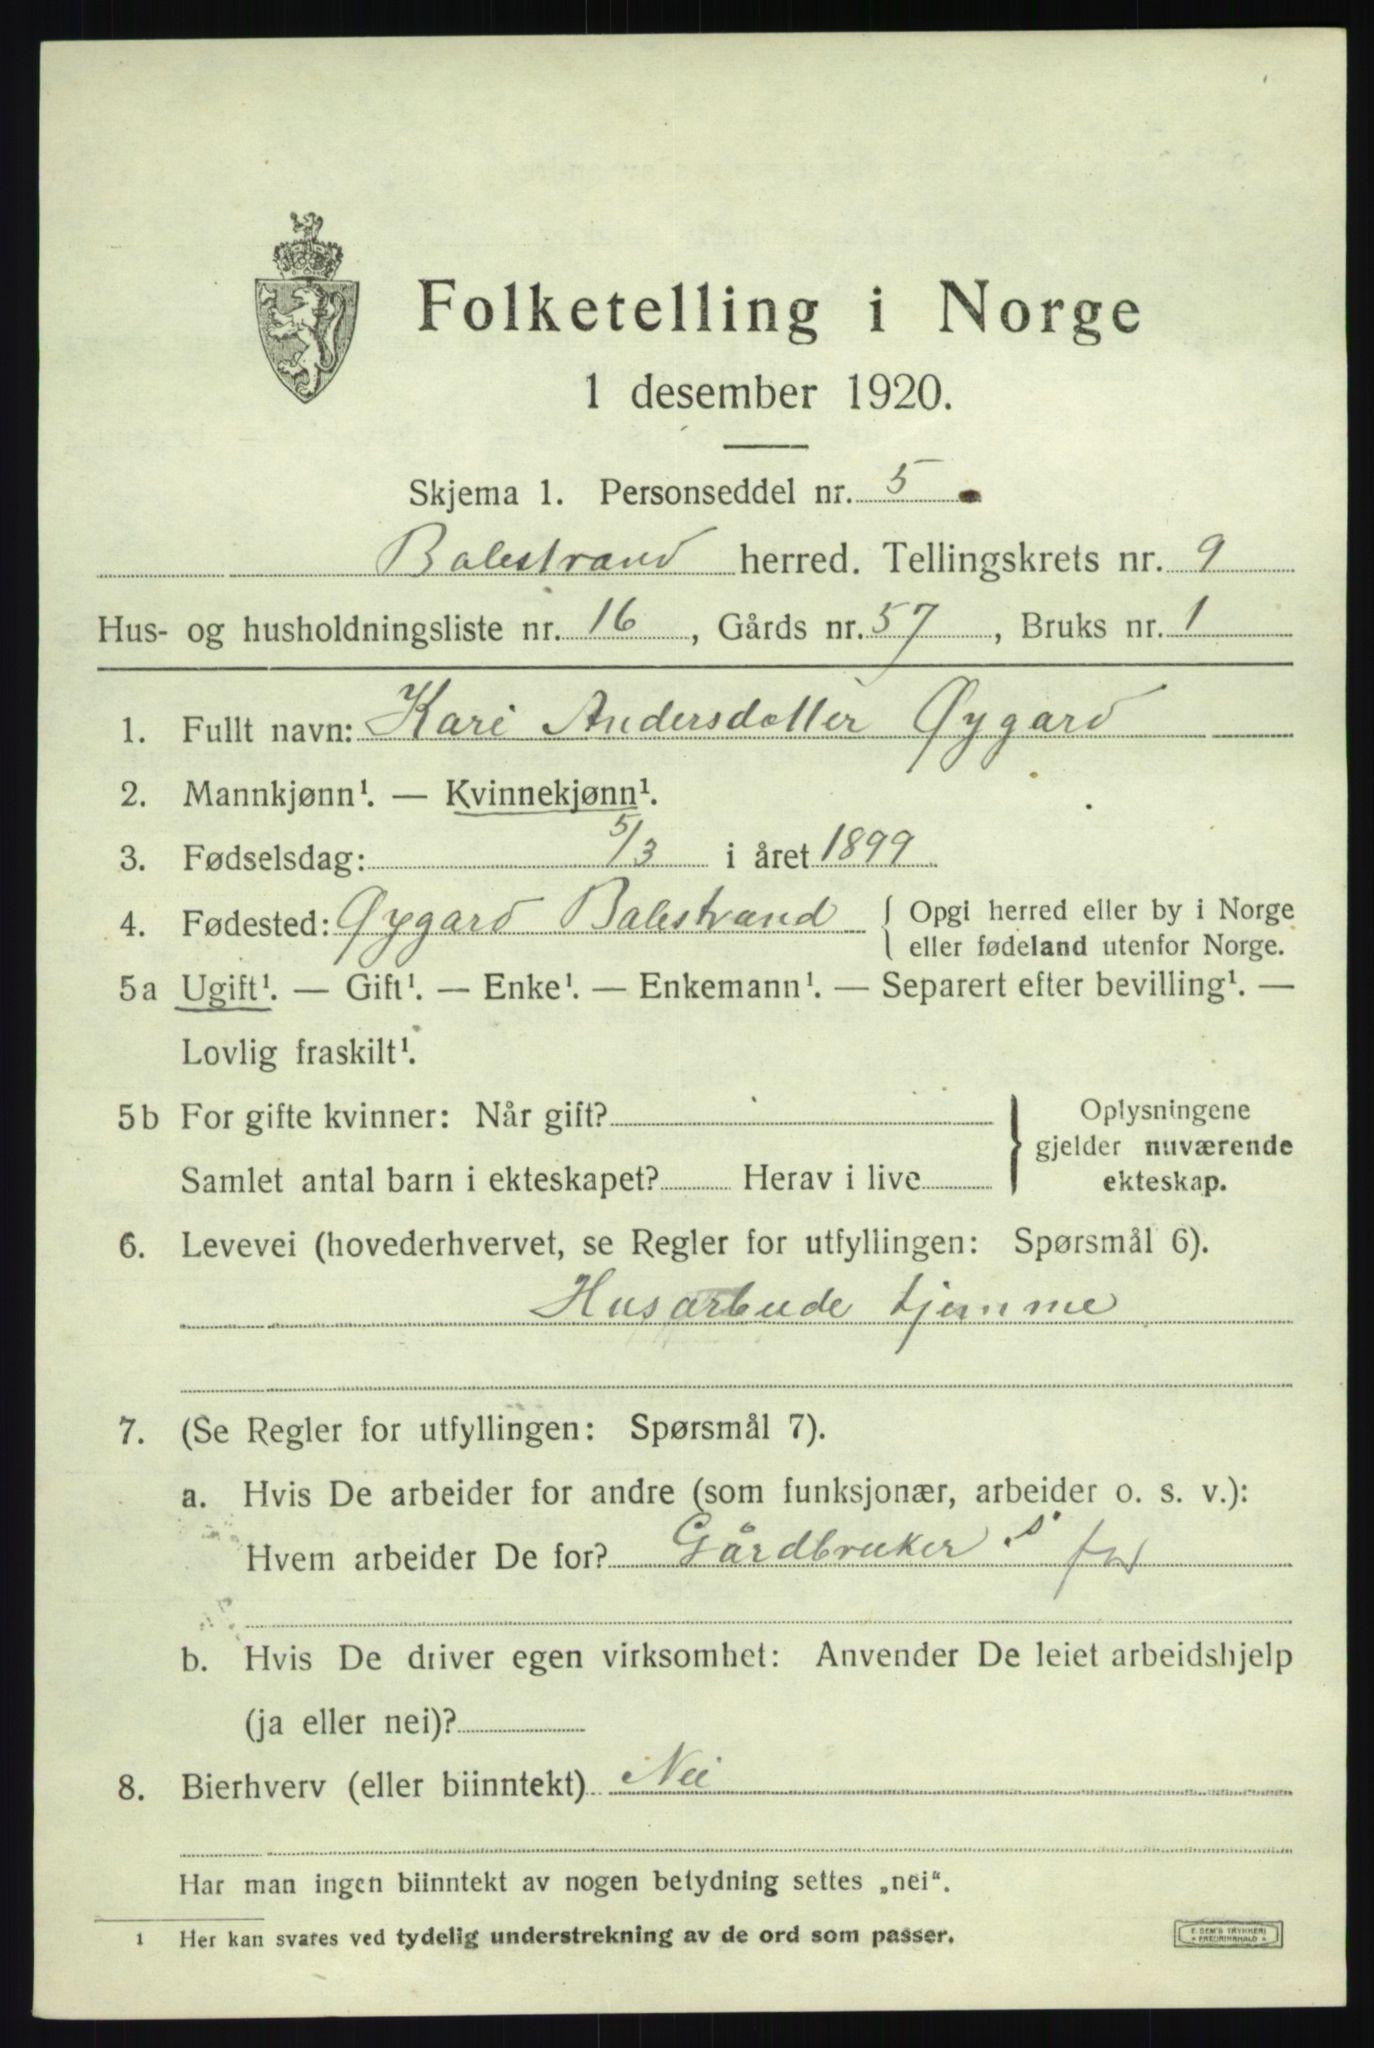 Folketelling i Norge
1 desember 1920.
Skjema 1. Personseddel nr. 5
Balestrand herred. Tellingskrets nr. 9
Hus- og husholdningsliste nr. 16, Gårds nr. 57, Bruks nr. 1
1. Fullt navn: Kari Andersdotter Øygard
2. Mannkjønn¹. — Kvinnekjønn¹.
3. Fødselsdag: 5/3 i året 1899
4. Fødested: Øygard Balestrand { Opgi herred eller by i Norge
eller fødeland utenfor Norge.
5a Ugift¹. — Gift¹. — Enke¹. — Enkemann¹. — Separert efter bevilling¹. —
Lovlig fraskilt¹.
5b For gifte kvinner: Når gift? } Oplysningene
gjelder nuværende
Samlet antal barn i ekteskapet? Herav i live ekteskap.
6. Levevei (hovederhvervet, se Regler for utfyllingen: Spørsmål 6).
Husarbeide hjemme
7. (Se Regler for utfyllingen: Spørsmål 7).
a. Hvis De arbeider for andre (som funksjonær, arbeider o. s. v.):
Hvem arbeider De for? Gårdbruker s
b. Hvis De driver egen virksomhet: Anvender De leiet arbeidshjelp
(ja eller nei)?
8. Bierhverv (eller biinntekt) Nei
Har man ingen biinntekt av nogen betydning settes „nei".
1 Her kan svares ved tydelig understrekning av de ord som passer.
E. SEM'S TRYKKERI
FREDRIKSHALD